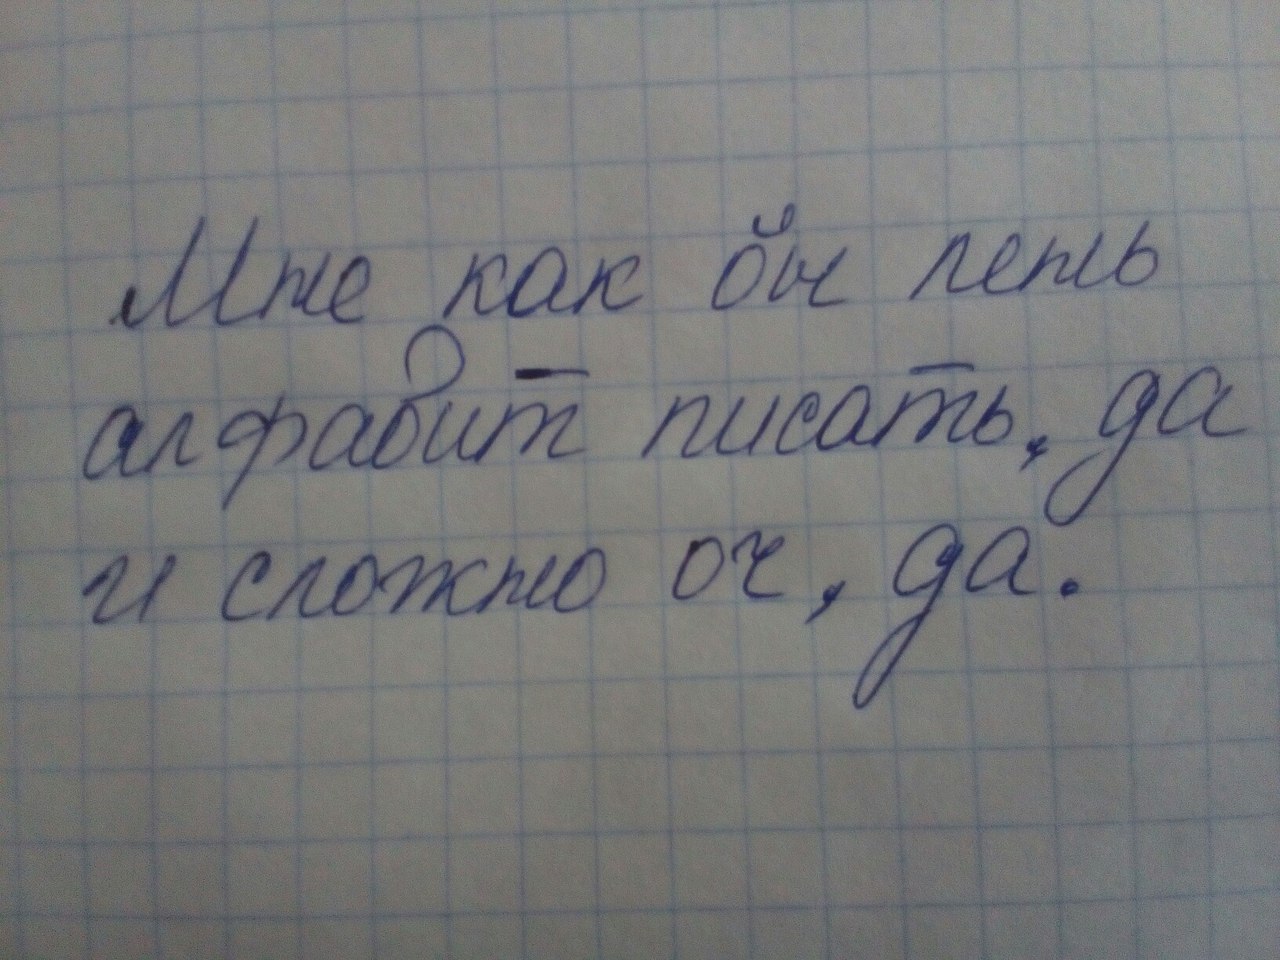 Мне как бы лень
алфавит писать, да
и сложно оч, да.